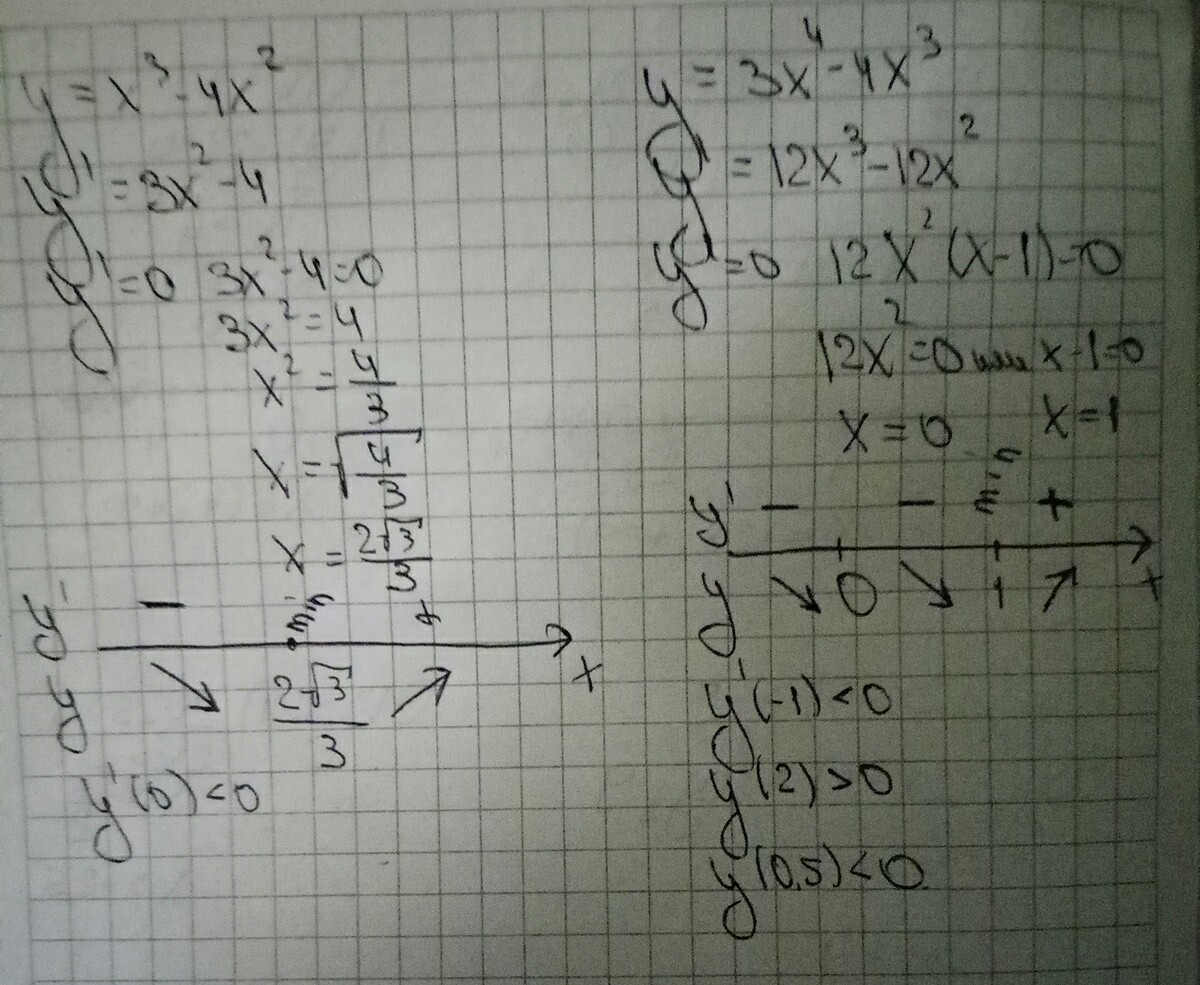 y = x³ - 4x²
y' = 3x² - 4
y' = 0 3x² - 4 = 0
3x² = 4
x² = 4/3
x = √(4/3)
x = 2√3/3
y' − min +
y ↘ 2√3/3 ↗ x
y'(0) < 0
y = 3x⁴ - 4x³
y' = 12x³ - 12x²
y' = 0 12x² (x-1) = 0
12x² = 0 или x - 1 = 0
x = 0 x = 1
y' − − min +
y ↘ 0 ↘ 1 ↗ x
y'(-1) < 0
y'(2) > 0
y'(0,5) < 0